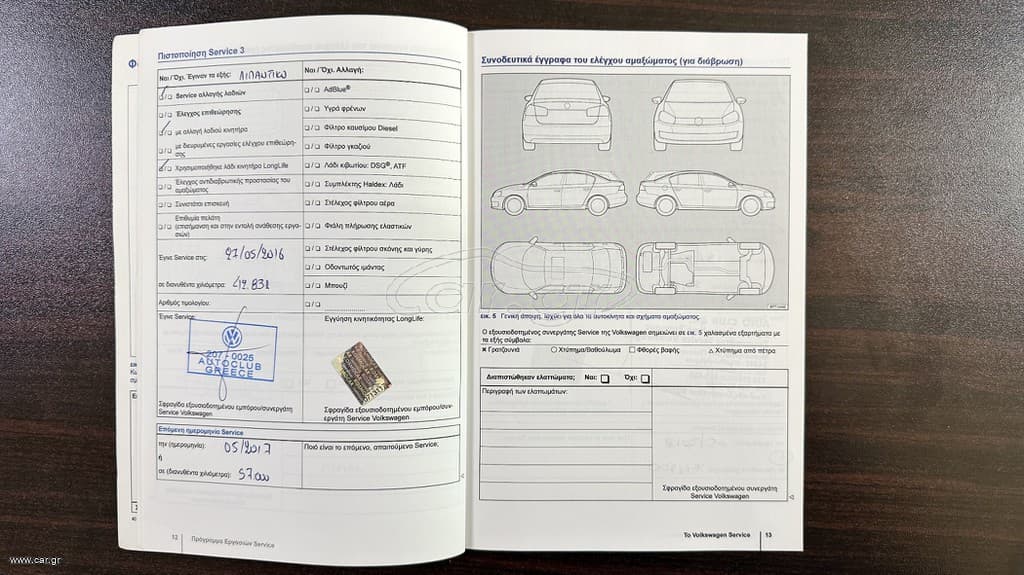 Πιστοποίηση Service 3
Ναι / Όχι. Έγιναν τα εξής: ΛΙΠΑΝΤΙΚΟ
Ναι / Όχι. Αλλαγή:
❏/❏ Service αλλαγής λαδιών
❏/❏ AdBlue®
❏/❏ Έλεγχος επιθεώρησης
❏/❏ Υγρά φρένων
❏/❏ με αλλαγή λαδιού κινητήρα
❏/❏ Φίλτρο καυσίμου Diesel
❏/❏ με διευρυμένες εργασίες ελέγχου επιθεώρη-
σης
❏/❏ Φίλτρο γκαζιού
❏/❏ Χρησιμοποιήθηκε λάδι κινητήρα LongLife
❏/❏ Λάδι κιβωτίου: DSG®, ATF
❏/❏ Έλεγχος αντιδιαβρωτικής προστασίας του
αμαξώματος
❏/❏ Συμπλέκτης Haldex: Λάδι
❏/❏ Συνιστάται επισκευή
❏/❏ Στέλεχος φίλτρου αέρα
❏/❏ Επιθυμία πελάτη
(επισήμανση και στην εντολή ανάθεσης εργα-
σιών)
❏/❏ Φιάλη πλήρωσης ελαστικών
Έγινε Service στις: 27/05/2016
❏/❏ Στέλεχος φίλτρου σκόνης και γύρης
❏/❏ Οδοντωτός ιμάντας
σε διανυθέντα χιλιόμετρα: 42.832
❏/❏ Μπουζί
Αριθμός τιμολογίου:
❏/❏
Έγινε Service:
Εγγύηση κινητικότητας LongLife:
207-0025
AUTOCLUB
GREECE
Σφραγίδα εξουσιοδοτημένου εμπόρου/συνεργάτη
Service Volkswagen
Σφραγίδα εξουσιοδοτημένου εμπόρου/συν-
εργάτη Service Volkswagen
Επόμενη ημερομηνία Service
την (ημερομηνία): 05/2017
Ποιό είναι το επόμενο, απαιτούμενο Service;
ή
σε (διανυθέντα χιλιόμετρα): 57.000
12 Πρόγραμμα Εργασιών Service
Συνοδευτικά έγγραφα του ελέγχου αμαξώματος (για διάβρωση)
εικ. 5 Γενική άποψη. Ισχύει για όλα τα αυτοκίνητα και σχήματα αμαξώματος.
Ο εξουσιοδοτημένος συνεργάτης Service της Volkswagen σημειώνει σε εικ. 5 χαλασμένα εξαρτήματα με
τα εξής σύμβολα:
✖ Γρατζουνιά ○ Χτύπημα/Βαθούλωμα □ Φθορές βαφής △ Χτύπημα από πέτρα
Διαπιστώθηκαν ελαττώματα; Ναι: ❏ Όχι: ❏
Περιγραφή των ελαττωμάτων:
Σφραγίδα εξουσιοδοτημένου συνεργάτη
Service Volkswagen
Το Volkswagen Service 13
www.car.gr